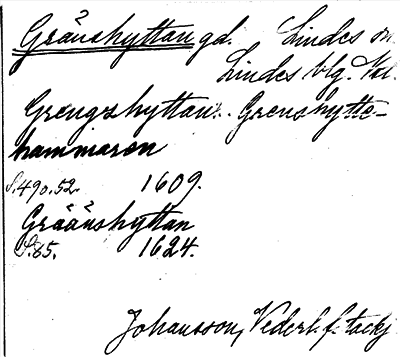 Gränshyttan gd. Lindes sn.
Lindes blg. Vstl.
Grengshyttan. Grenshytte-
hammaren
S. 490. 52. 1609.
Gräänshyttan
S. 85. 1624.
Johansson, Vederl. f. tackj